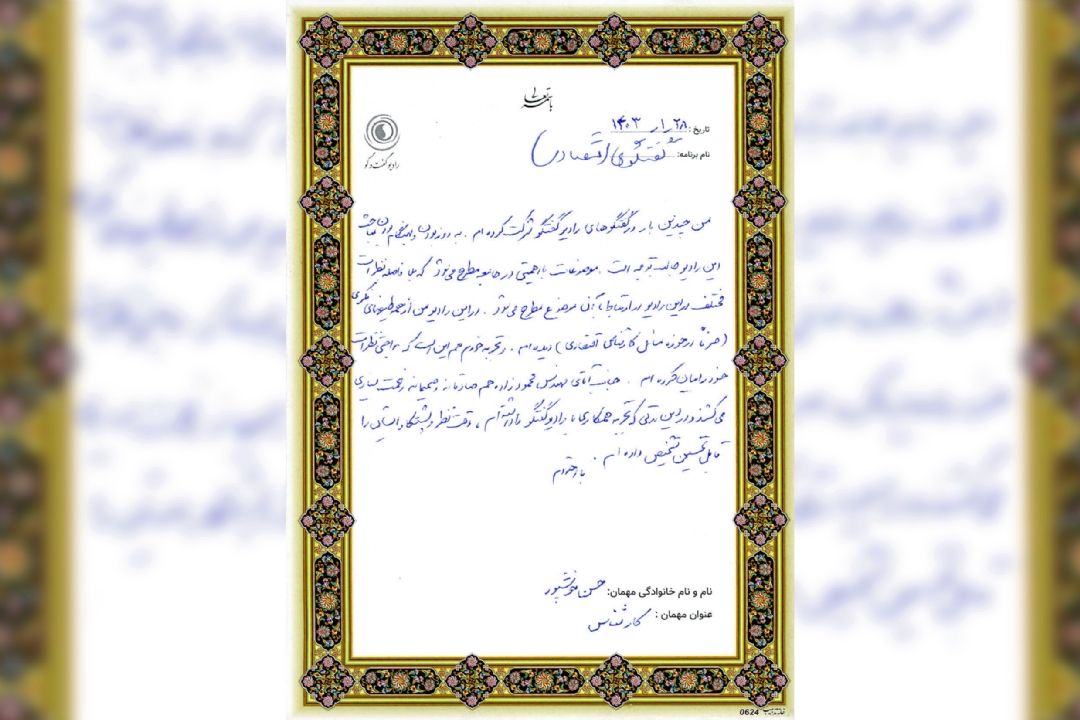 باسمه تعالی
رادیو گفت و گو
تاریخ: ۲۸ ر ا ر ۱۴۰۳
نام برنامه: گفتگوی اقتصادی
من چندین بار در گفتگوهای رادیو گفتگو شرکت کرده ام . به روز بودن و بهنگام بودن مباحث
این رادیو جالب توجه است . موضوعات با اهمیتی در جامعه مطرح می‌شود که بلافاصله نظرات
مختلف در این رادیو در ارتباط با آن موضوع مطرح می‌شود . در این رادیو من از همه طیف‌های فکری
( صرفاً در حوزه مسائل کارشناسی اقتصادی ) دیده ام . و تجربه خودم هم این است که به راحتی نظرات
خود را بیان کرده ام . جناب آقای مهندس محمودزاده هم صادقانه و صمیمانه زحمت بسیاری
می‌کشند و در این مدتی که تجربه همکاری با رادیو گفتگو را داشته ام ، دقت نظر و پشتکار ایشان را
قابل تحسین تشخیص داده ام .
با احترام
نام و نام خانوادگی مهمان: حسن
عنوان مهمان : کارشناس
0624